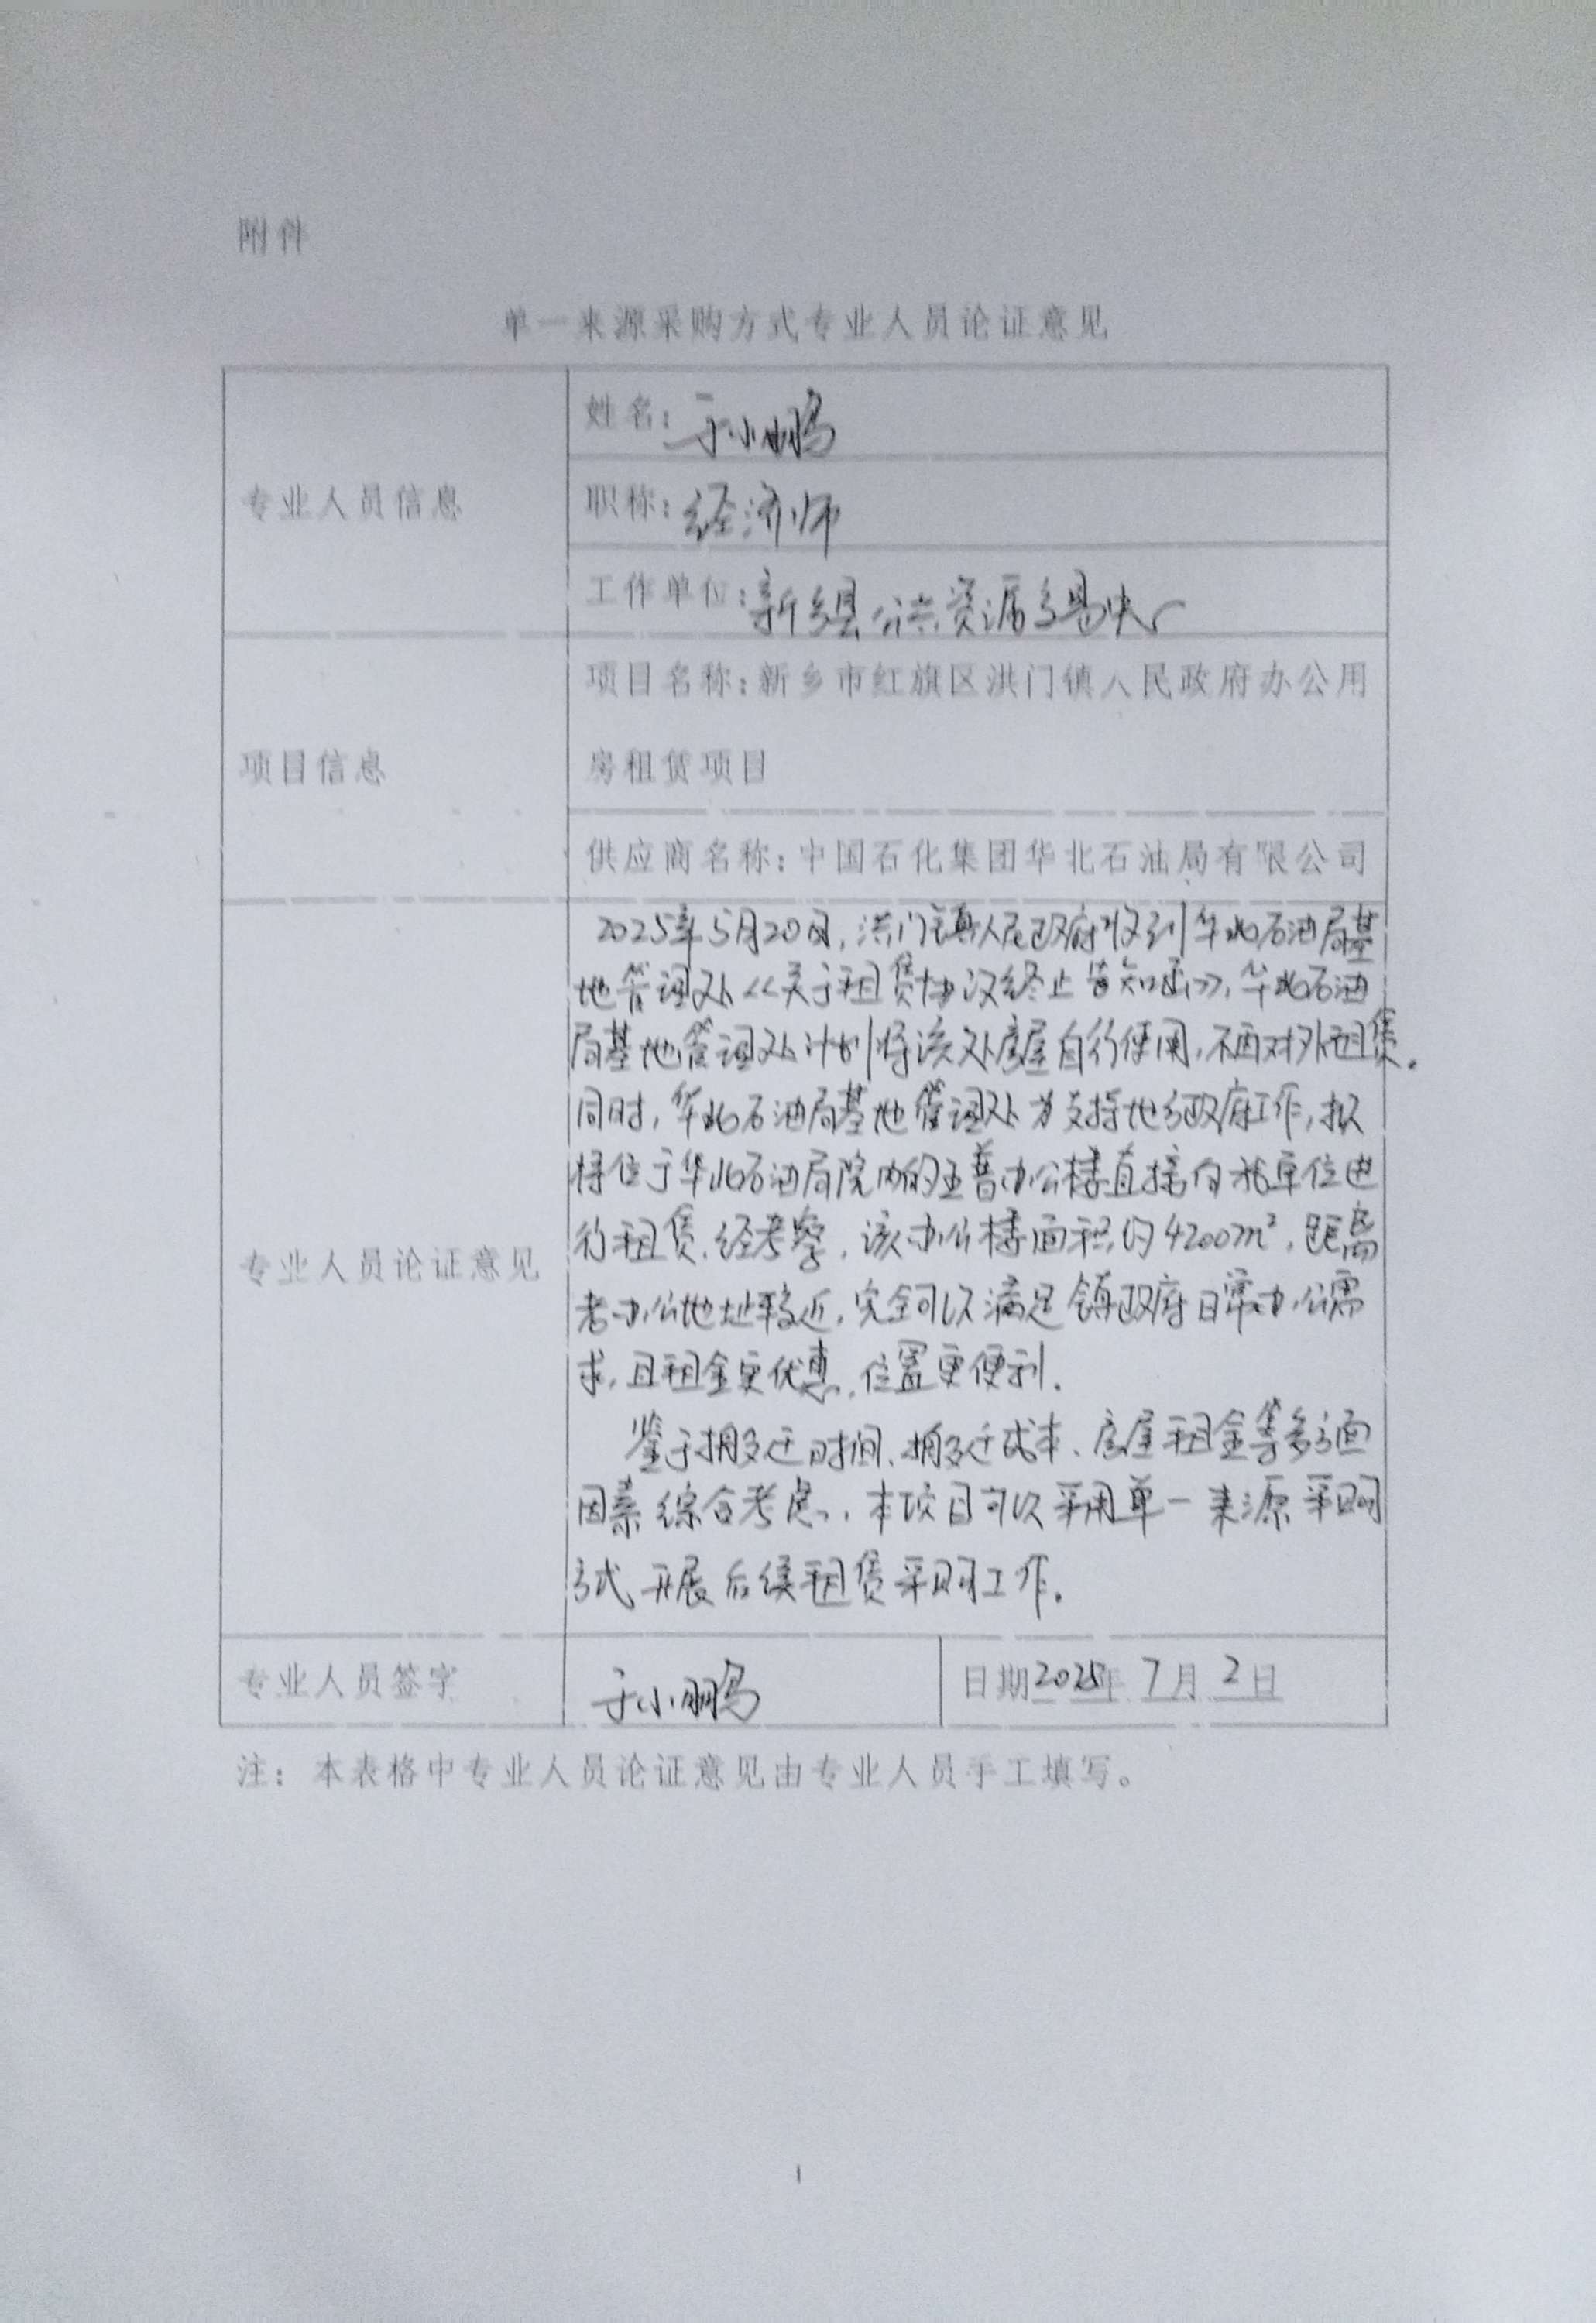 附件
单一来源采购方式专业人员论证意见
专业人员信息
姓名：于小鹏
职称：经济师
工作单位：新乡县公共资源交易中心
项目信息
项目名称：新乡市红旗区洪门镇人民政府办公用
房租赁项目
供应商名称：中国石化集团华北石油局有限公司
专业人员论证意见
2025年5月20日，洪门镇人民政府收到华北石油局基
地管理处《关于租赁协议终止告知函》，华北石油
局基地管理处计划将该处房屋自行使用，不再对外租赁。
同时，华北石油局基地管理处为支持地方政府工作，拟
将位于华北石油局院内的五普办公楼直接向我单位进
行租赁，经考察，该办公楼面积约4200m²，距离
老办公地址较近，完全可以满足镇政府日常办公需
求，且租金更优惠，位置更便利．
鉴于搬迁时间、搬迁成本、房屋租金等多方面
因素综合考虑，本项目可以采用单一来源采购
方式开展后续租赁采购工作．
专业人员签字
于小鹏
日期2025年 7月 2日
注：本表格中专业人员论证意见由专业人员手工填写。
1